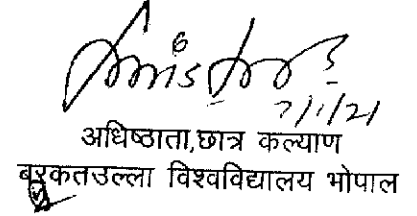 7/1/21
अधिष्ठाता,छात्र कल्याण
बरकतउल्ला विश्वविद्यालय भोपाल